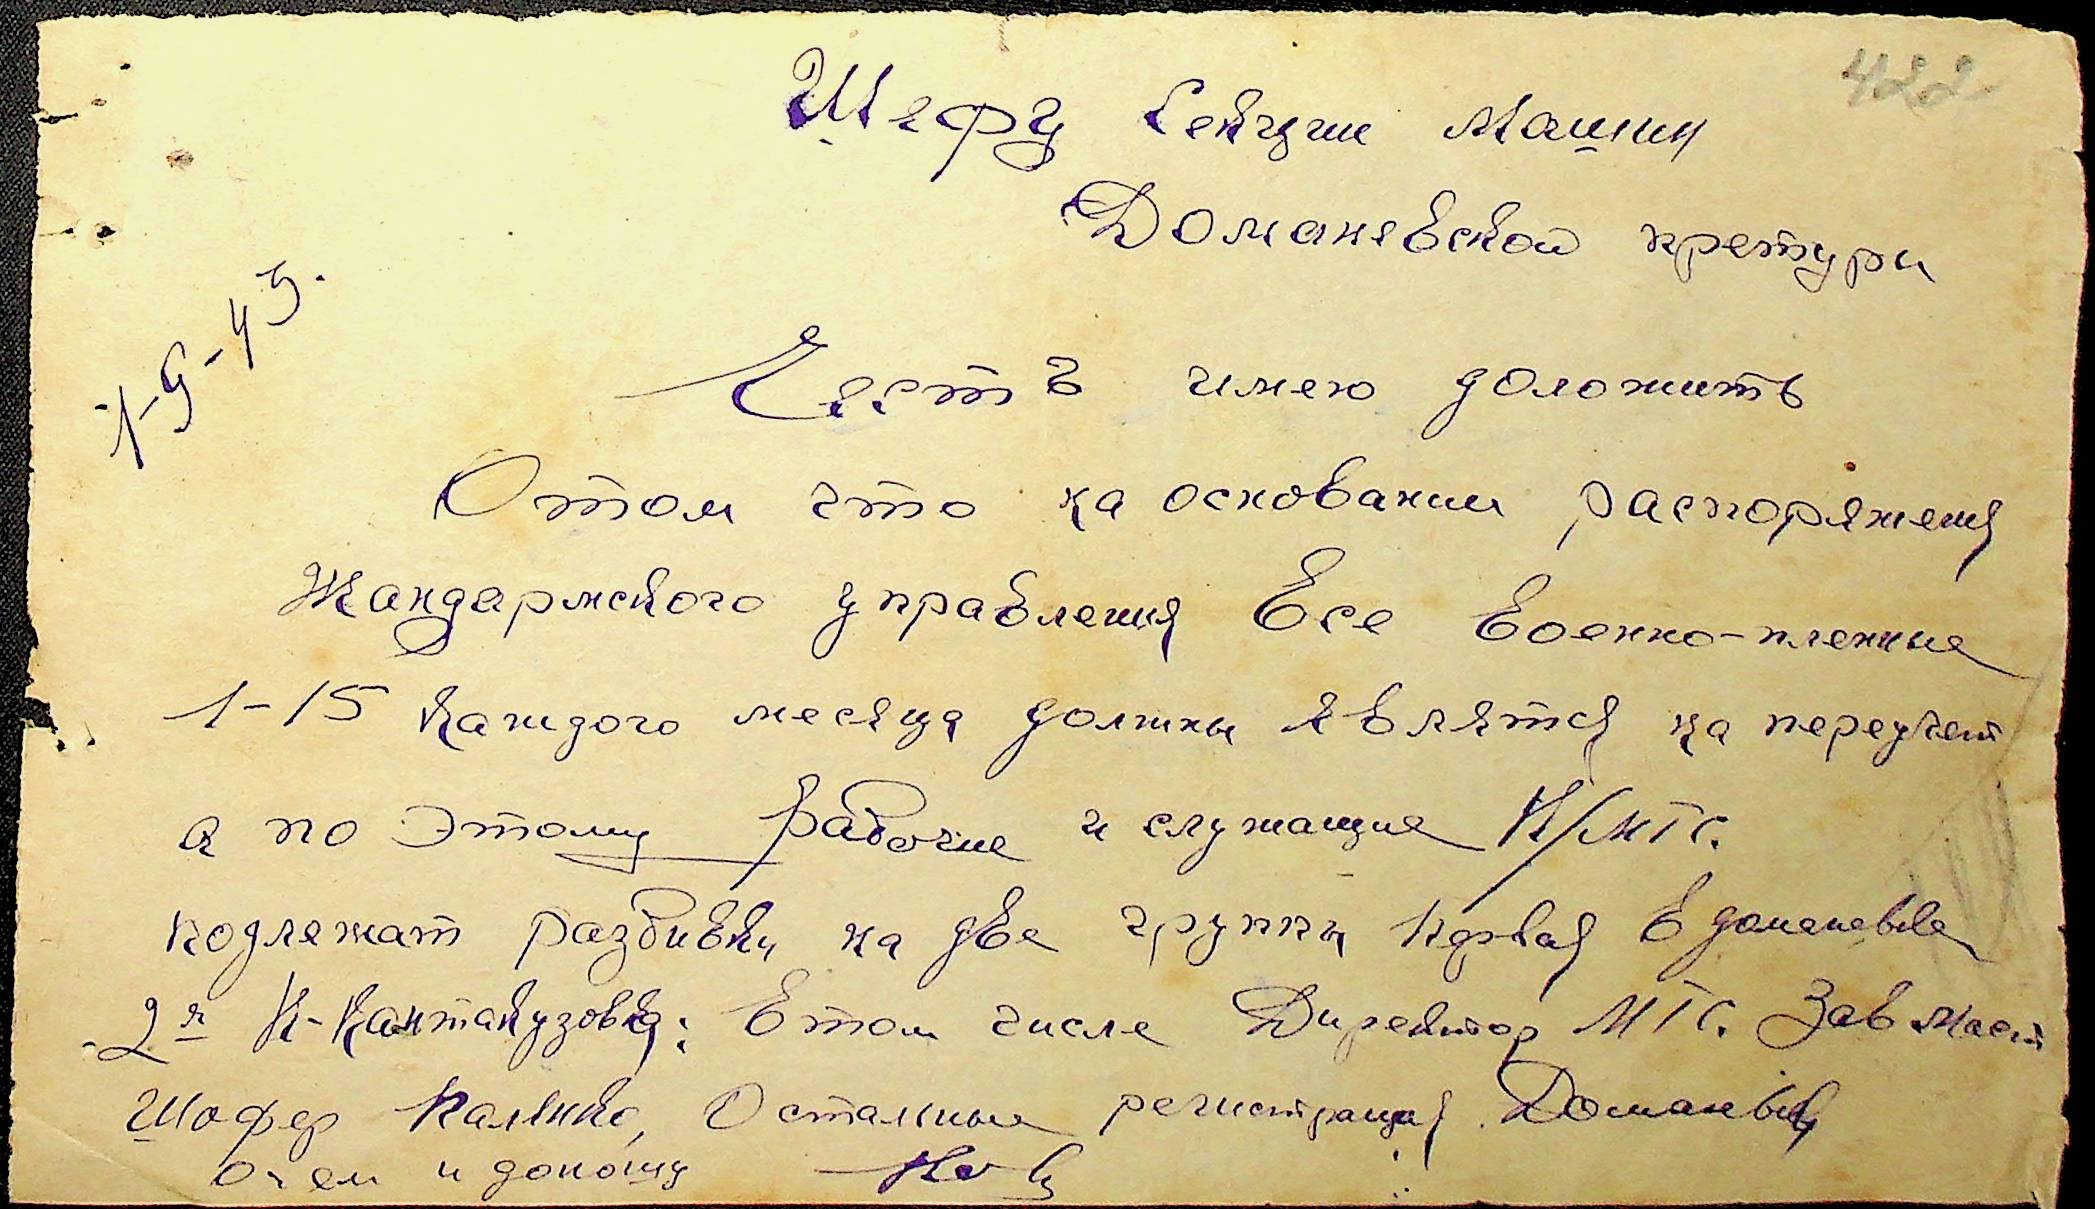 422
Шефу Секции Машин
Доманевской претури
1-9-43.
Честь имею доложить
О том что на основании распоряжения
Жандармского управления Все Военно-пленные
1-15 Каждого месяца должны являтся на переучет
а по этому Рабочие и служащие К/МТС.
подлежат разбивки на две группы первая в доманевке
2я К-Кантакузовка: в том числе Директор МТС. Зав маст
Шофер Остальные регистрация Доманевка
О чем и доношу